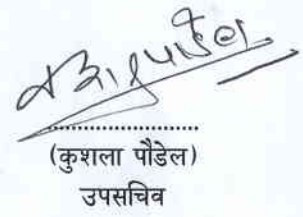 ....................
(कुशला पौडेल)
उपसचिव